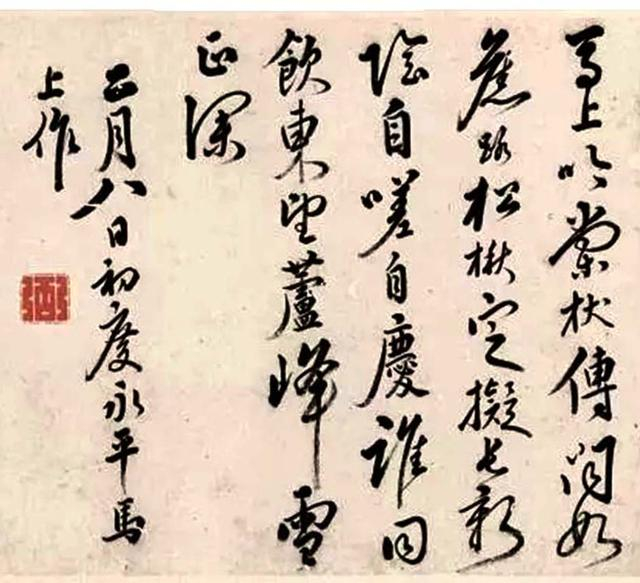 馬上吟棠杕傳聞如
舊路松楸定擬長新
陰自嗟自慶誰同
飲東望蘆峰雪
正深
正月八日初度永平馬
上作